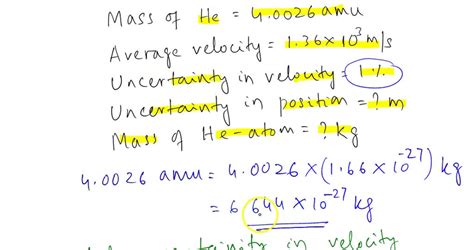 Mass of He = 4.0026 amu
Average velocity = 1.36 × 10³ m/s
Uncertainty in velocity = 1%
Uncertainty in position = ? m
Mass of He-atom = ? kg
4.0026 amu = 4.0026 × (1.66 × 10⁻²⁷) kg
= 6.644 × 10⁻²⁷ kg
uncertainity in velocity